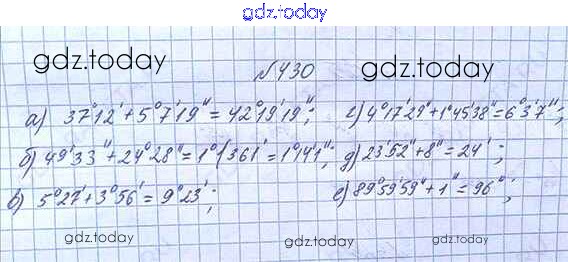 gdz.today
gdz.today
№430
gdz.today
а) 37°12' + 5°7'19" = 42°19'19";
г) 4°17'29" + 1°45'38" = 6°3'7";
б) 49'33" + 24°28" = 1°1'361' = 1°14'1";
д) 23'52" + 8" = 24';
в) 5°27' + 3°56' = 9°23';
е) 89°59'59" + 1" = 96°;
gdz.today
gdz.today
gdz.today